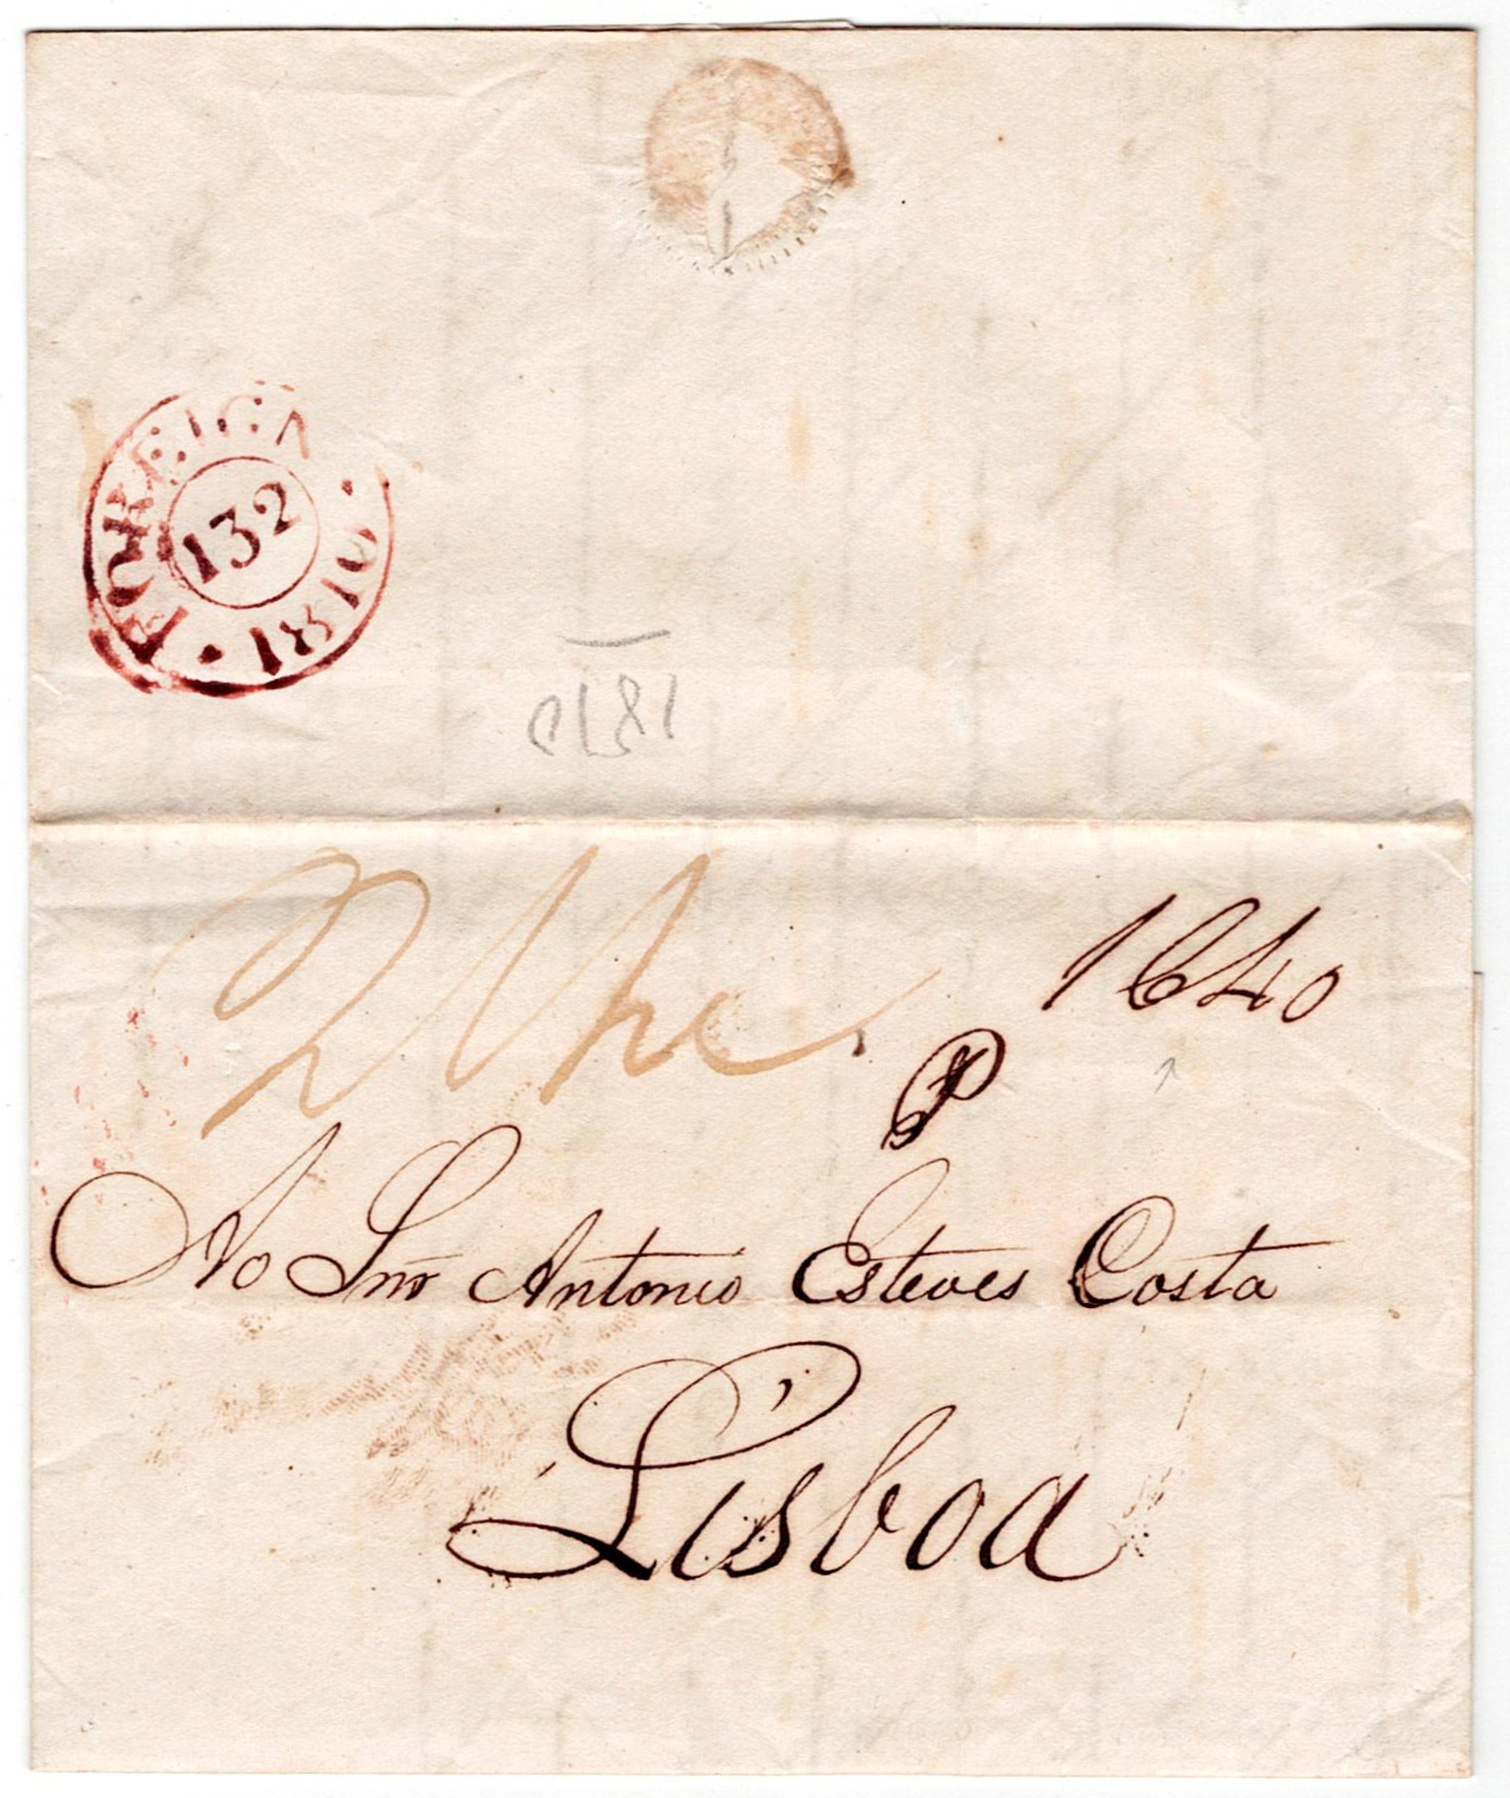 FOREIGN · 1810 ·
132
1810
1640
P
Ao Snr Antonio Esteves Costa
Lisboa